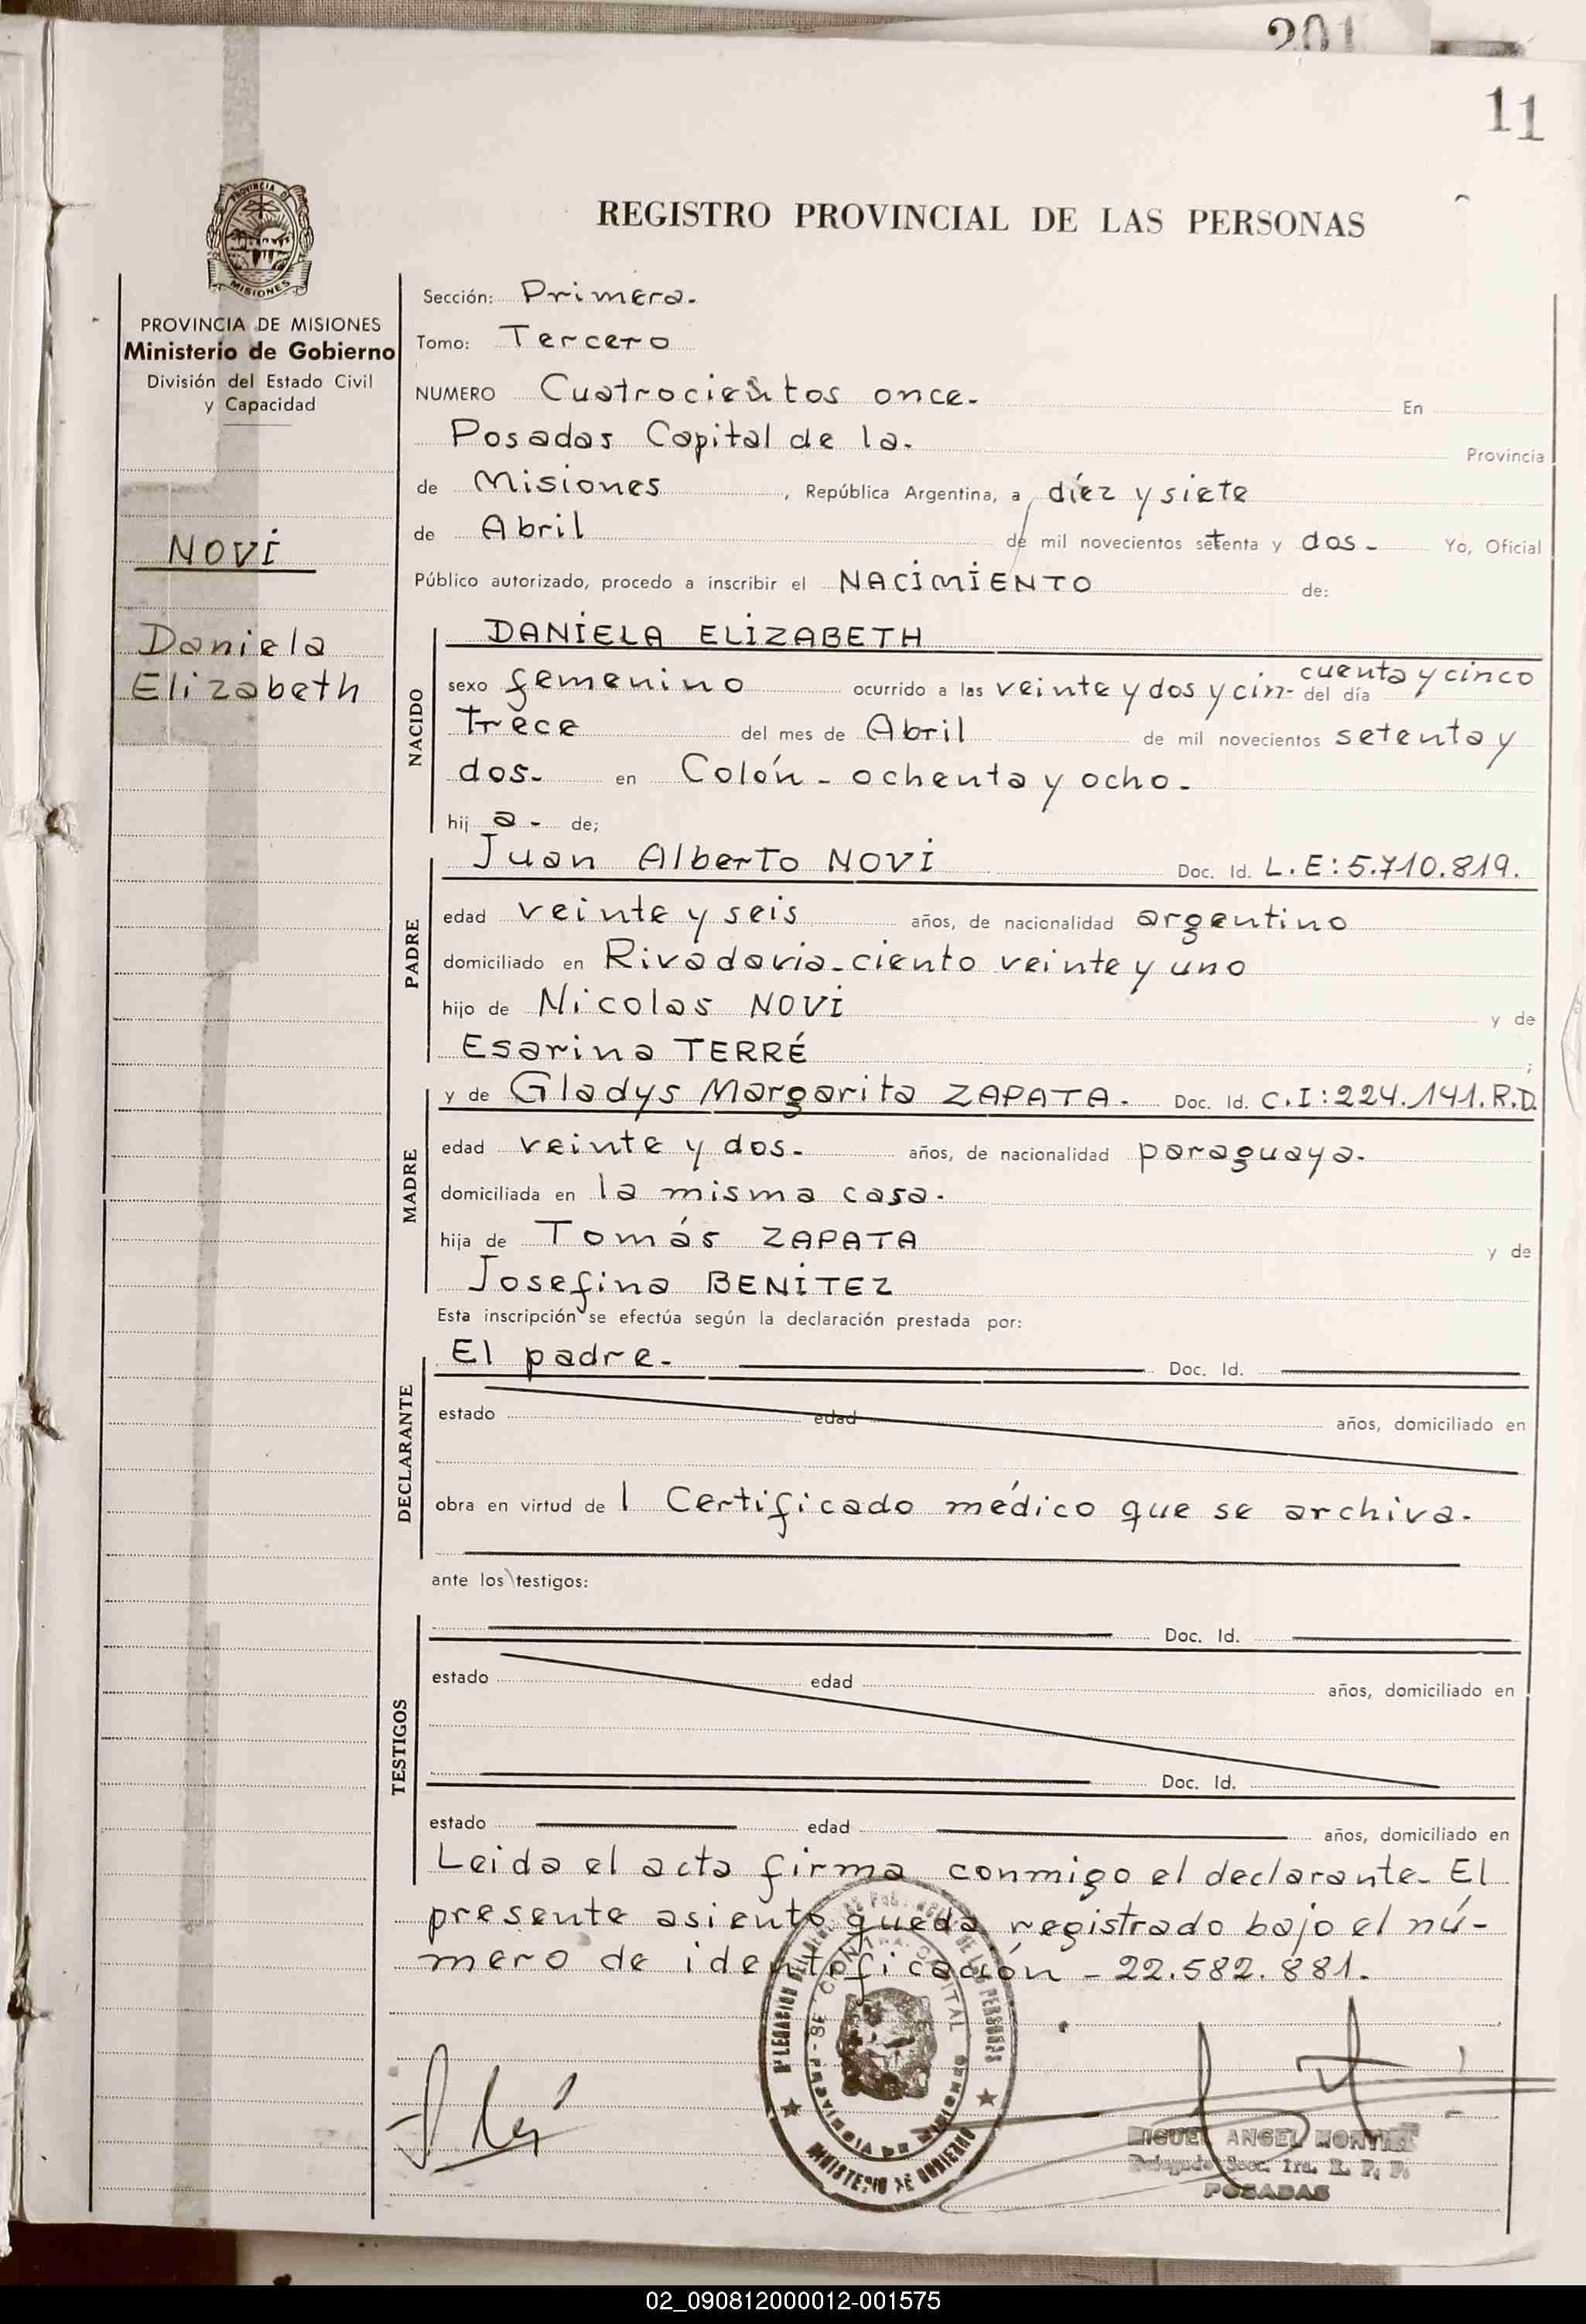 201
11
PROVINCIA DE
MISIONES
REGISTRO PROVINCIAL DE LAS PERSONAS
PROVINCIA DE MISIONES
Ministerio de Gobierno
División del Estado Civil
y Capacidad
NOVI
Daniela
Elizabeth
Sección: Primera.
Tomo: Tercero
NUMERO Cuatrocientos once. En
Posadas Capital de la. Provincia
de Misiones, República Argentina, a diez y siete
de Abril de mil novecientos setenta y dos. Yo, Oficial
Público autorizado, procedo a inscribir el NACIMIENTO de:
NACIDO
DANIELA ELIZABETH
sexo femenino ocurrido a las veinte y dos y cin- cuenta y cinco del día
trece del mes de Abril de mil novecientos setenta y
dos. en Colón - ochenta y ocho.
hij a. de;
PADRE
Juan Alberto NOVI Doc. Id. L.E: 5.710.819.
edad veinte y seis años, de nacionalidad argentino
domiciliado en Rivadavia - ciento veinte y uno
hijo de Nicolas NOVI y de
Esarina TERRÉ ;
MADRE
y de Gladys Margarita ZAPATA. Doc. Id. C.I: 224.141.R.D.
edad veinte y dos. años, de nacionalidad paraguaya.
domiciliada en la misma casa.
hija de Tomás ZAPATA y de
Josefina BENITEZ
Esta inscripción se efectúa según la declaración prestada por:
DECLARANTE
El padre. Doc. Id.
estado edad años, domiciliado en
obra en virtud de l Certificado médico que se archiva.
ante los testigos:
TESTIGOS
Doc. Id.
estado edad años, domiciliado en
Doc. Id.
estado edad años, domiciliado en
Leida el acta firma conmigo el declarante. El
presente asiento queda registrado bajo el nú-
mero de identificación - 22.582.881.
DE LAS PERSONAS
PROVINCIA DE MISIONES
MINISTERIO DE GOBIERNO
MIGUEL ANGEL
Delegado Secc. 1ra. R. P. P.
POSADAS
02_090812000012-001575